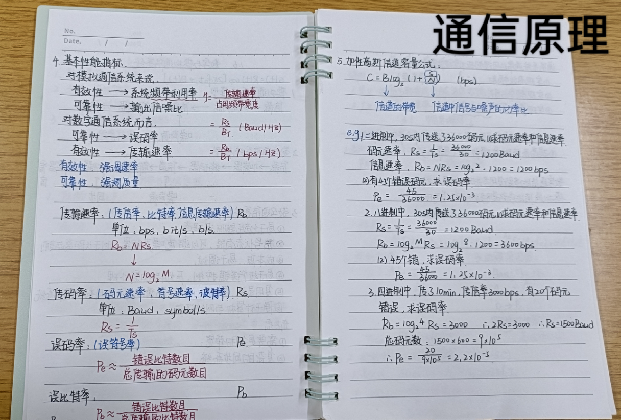 通信原理
No.
Date. / /
4.基本性能指标.
对模拟通信系统来说.
有效性 → 系统频带利用率 η = 传输速率 / 占用频带宽度
可靠性 → 输出信噪比
对数字通信系统而言. = Rs/B1 (Baud/Hz)
可靠性 → 误码率
有效性 → 传输速率 = Rb/B1 (bps/Hz)
有效性 强调速率
可靠性 强调质量
传输速率:(传信率,比特率,信息传输速率) Rb
单位:bps, bit/s, b/s.
Rb = NRs
↓
N = log₂M
传码率:(码元速率, 波特率) Rs
单位:Baud, symbol/s
Rs = 1/Ts
误码率:(误符号率) Pe
Pe ≈ 错误比特数目 / 总传输的码元数目
误比特率. Pb
Pb ≈ 错误比特数目
5.加性高斯信道容量公式.
C = Blog₂(1+S/N) (bps)
↓ ↓
信道的带宽
e.g 1.二进制中,30s内传送了36000码元,(1)求码元速率和信息速率
码元速率, Rs = 1/Ts = 36000/30 = 1200Baud
信息速率. Rb = NRs = log₂2 · 1200 = 1200bps
Pe = 45/36000 = 1.25×10⁻³
2.八进制中, 30s内传送了36000码元(1)求码元速率和信息速率
Rs = 1/Ts = 36000/30 = 1200Baud
Rb = log₂M Rs = log₂8 · 1200 = 3600bps
(2) 45个错, 求误码率
Pe = 45/36000 = 1.25×10⁻³
3.四进制中,传了10min,传信率3000bps,有20个码元
错误, 求误码率
Rb = log₂4 Rs = 3000 ∴2Rs=3000 ∴Rs=1500Baud
总码元数: 1500×600 = 9×10⁵
∴Pe = 20/9×10⁵ = 2.2×10⁻⁵